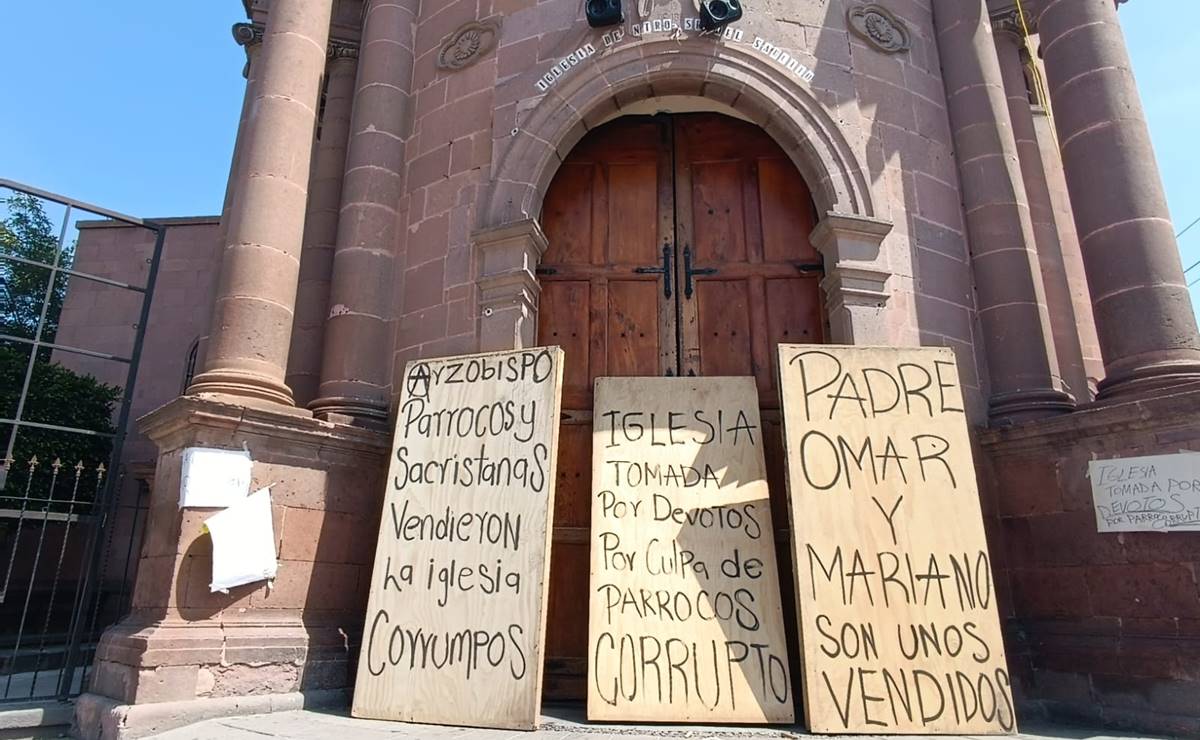 IGLESIA DE NTRO. SR. DEL SAUCITO
Arzobispo
Parrocos y
Sacristanas
Vendieron
La iglesia
Corrumpos
IGLESIA
TOMADA
Por Devotos
Por Culpa de
PARROCOS
CORRUPTO
PADRE
OMAR
Y
MARIANO
SON UNOS
VENDIDOS
IGLESIA
TOMADA POR
DEVOTOS
POR PARROCO